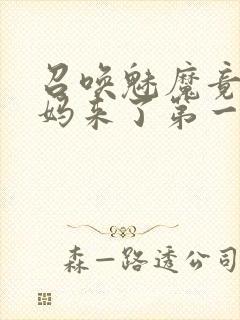 召唤魅魔竟
妈来了第一
森一路透公司